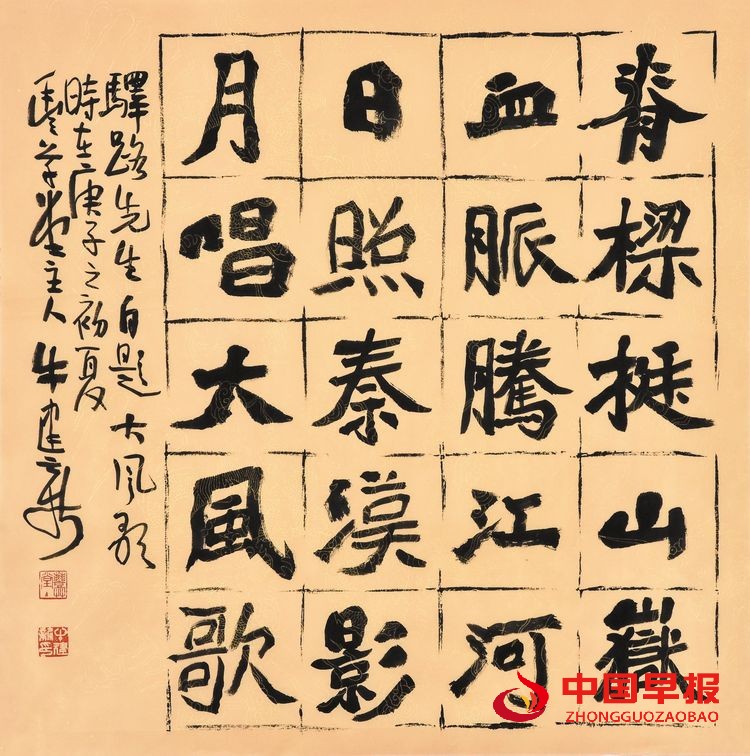 脊樑挺山嶽
血脈騰江河
日照秦漢影
月唱大風歌
驛路先生自題大風歌
時在庚子之初夏
草堂主人牛建
中国早报
ZHONGGUOZAOBAO